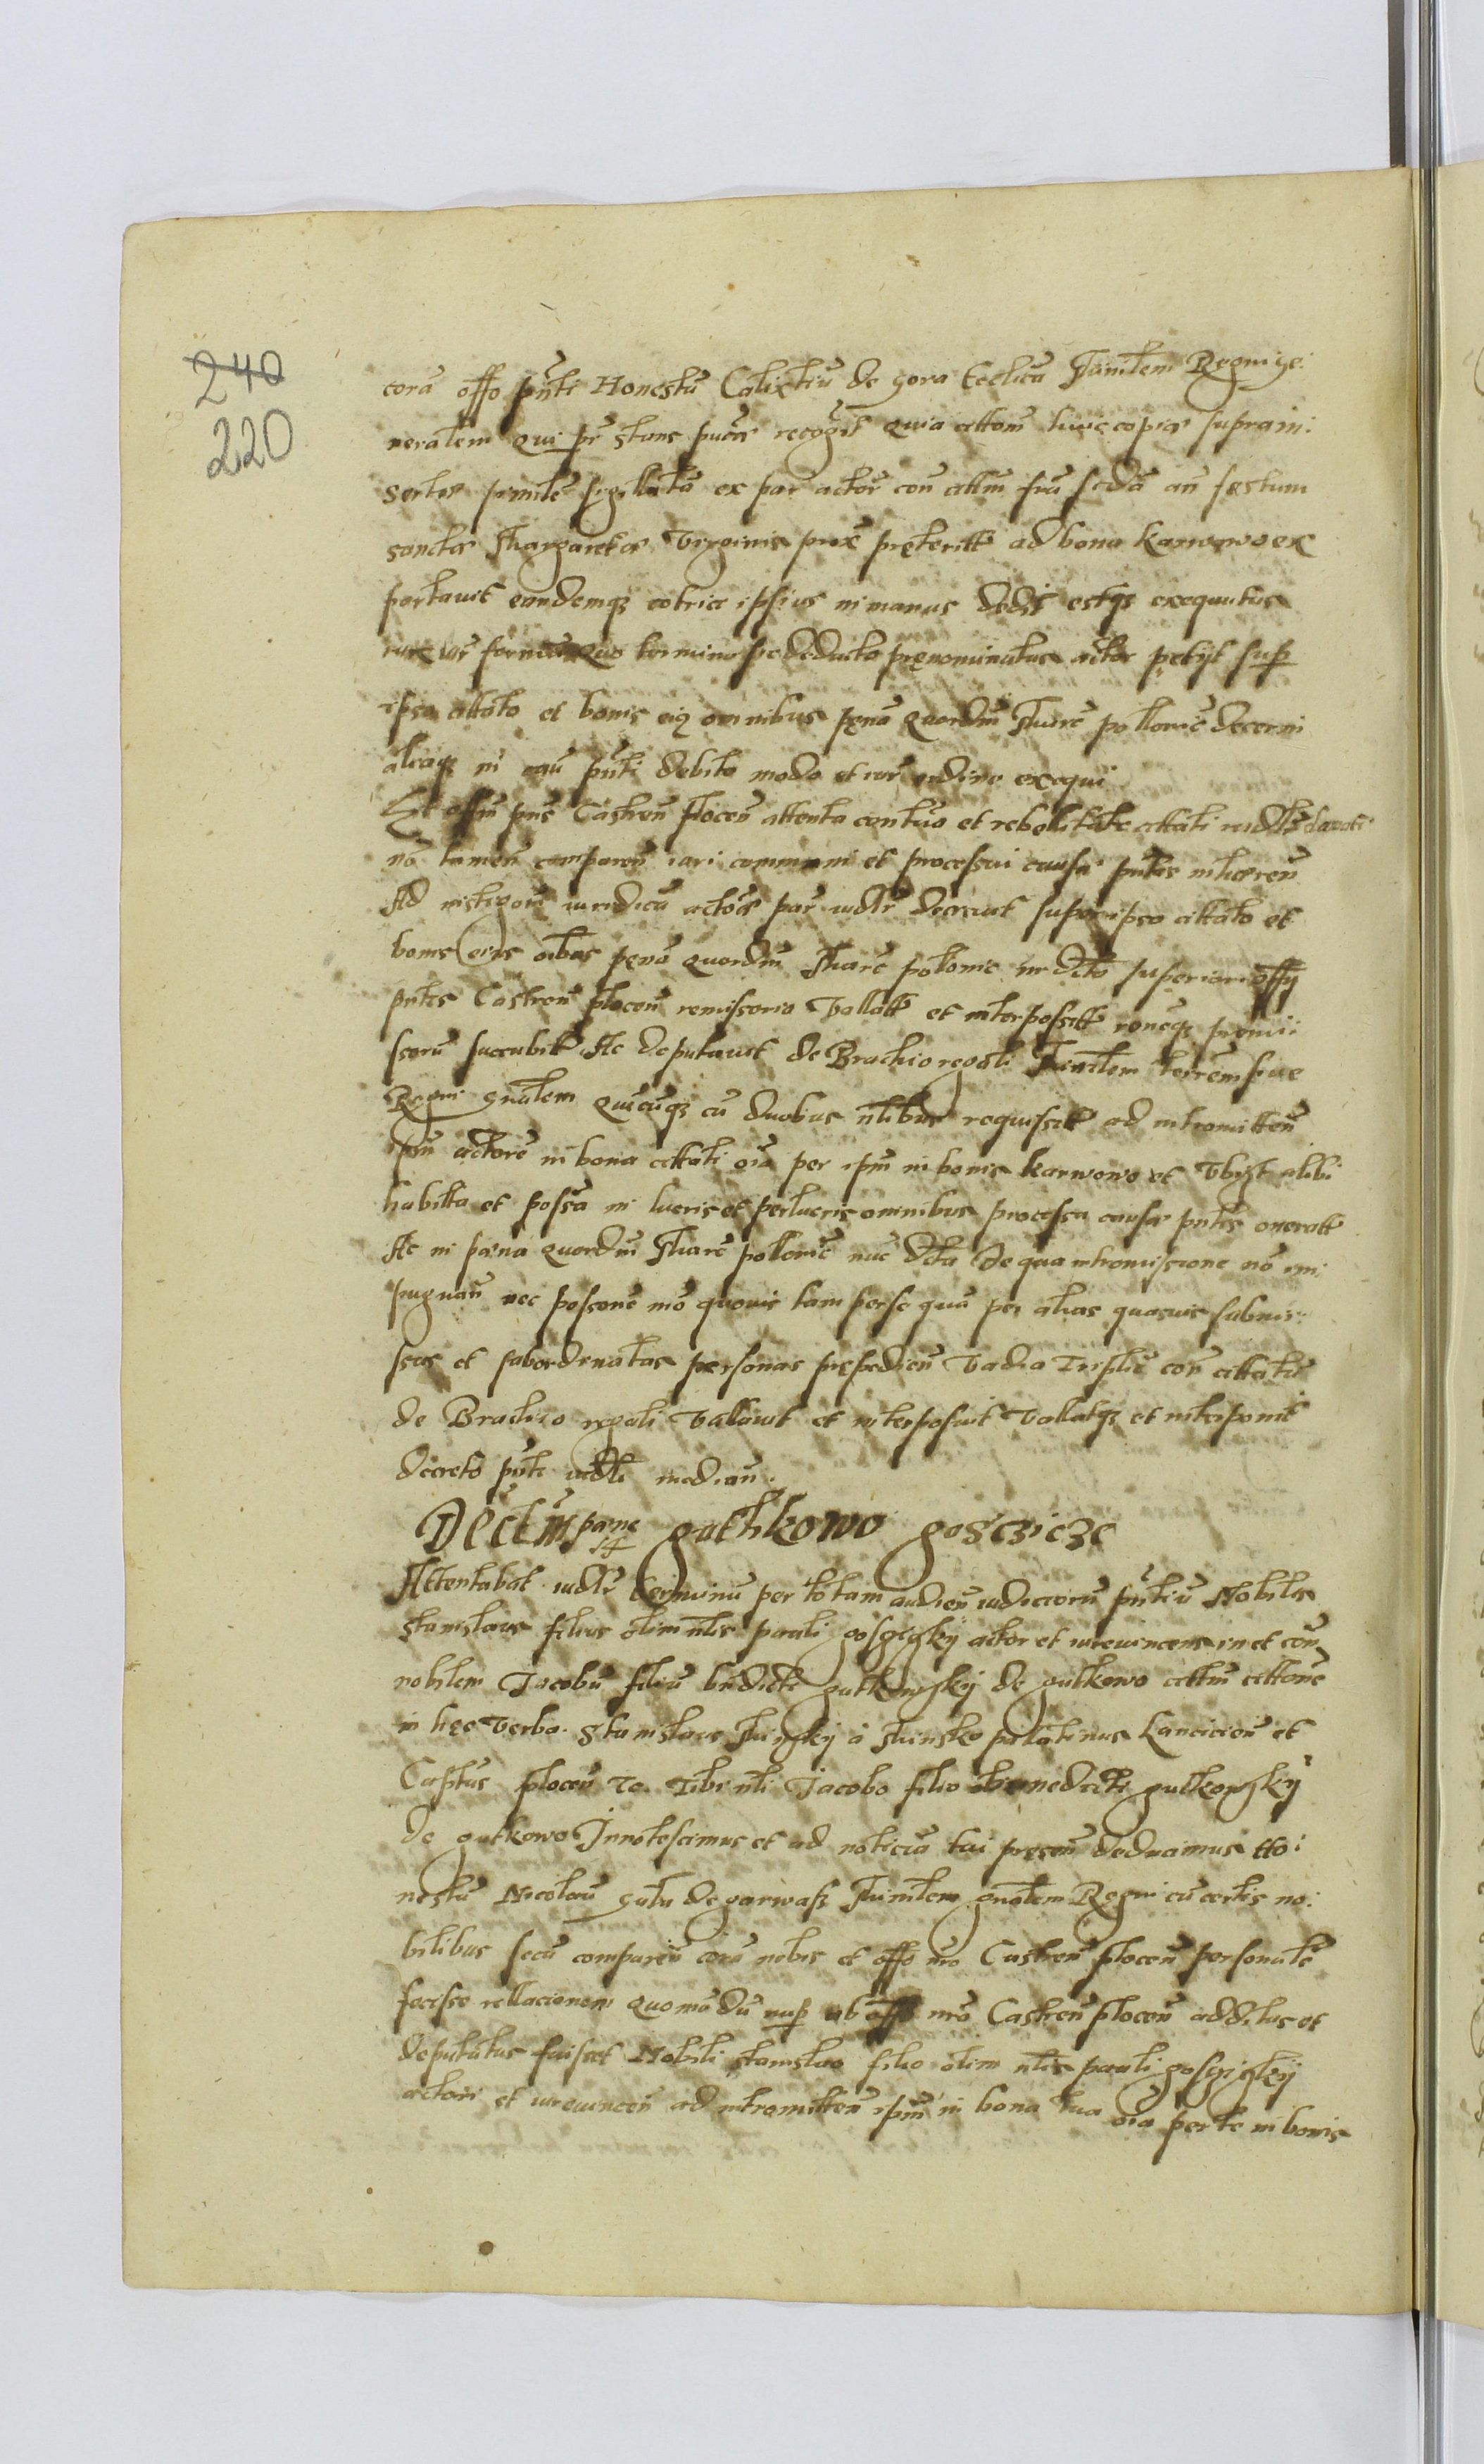 240
220
corā offo pn̄ti Honestū Calixtū de gora Ecclicā Ministem Regni ge:
neralem qui pn̄ stans pucē recogn̄t quia cittom̄ huic copiæ suprain:
sertæ similē sigillatā ex par actor̄ con cittm̄ fiā scdā an̄ festum
sanctæ Margaretæ Virginis prox̄ pręteritt ad bona Karwowo ex
portavit eandemqȝ cotrici ipsius in manus dedit estqȝ exequutus
iurx iur̄ formā Quo termino sic deducto pręnominatus actor petijt sup̄
ipso cittato et bonis eiȝ omnibus pęnā quordm̄ Marc̄ pollonic̄ decerni
aliaqȝ in cau pn̄ti debito modo et iur̄ ordine exequi
Et offm̄ pn̄s Castren̄ Plocen̄ attenta contuō et rebellitate cittati iudltr̄ davoti
nō tamen comparen̄ iuri communi et processui causæ pn̄tis inhæren̄
Ad instigoīm iuridicā actoris par̄ iudlr̄ decrevit super ipso cittato et
bonis eius oībus pęnā quordm̄ Marc̄ polonic̄ in dcto superiori offij
pn̄tis Castren̄ plocen̄ remissorio Vallatt et interpositt roneqȝ premi:
ssorū succubit Ac deputavit de Brachio regali Ministem terrēm sive
Regni gnālem quēcūqȝ cū duobus nlibus requisitt ad intromitten̄
ipm̄ actorē in bona cittati oīa per ipm̄ in bonis Karwowo et Vbīȝt alibi
habitta et possā in lucris et perlucris omnibus processu causæ pn̄tis oneratt
Ac in pœna quordm̄ Marc̄ pollonic̄ nūc dcta De qua intromissione nō im:
pugnan̄ nec possone mō quovis tam per se quā per alias quasvis submis:
sas et subordinatas personas prępedien̄ Vadia Triplic̄ con̄ cittatū
de Brachio regali vallavit et interposuit Vallatqȝ et interponit
decreto pn̄ti iudli median̄
Decctm̄ pœnę 14 guthkowo gosczicze
Attentabat iudlr̄ terminū per totam audien̄ iudiciorū pn̄tiū Nobilis
Stanislaus filius olim nlis pauli gosczyczkij actor et iurevincens in et con̄
nobilem Jacobū filiū bn̄dicti guthkowskij de gutkowo cittm̄ cittone
in hęc Verba Stanislaus Minskij à Minsko palatinus Lancicien̄ et
Captus plocen̄ &c Tibi nli Jacobo filio benedicti gutkowskij
de gutkowo Innotescimus et ad noticiā tui pręsen̄ deducimus Ho:
nestū Nicolaū guta de garwasz Ministem gnālem Regni cū certis no:
bilibus secū comparen̄ corā nobis et offo nr̄o Castren̄ plocen̄ personalr̄
fecisse rellacionem quomo dū nup̄ ab offo nr̄o Castren̄ plocen̄ additus et
deputatus fuisset Nobili Stanislao filio olim nlis pauli gosczickij
actori et iurevincen̄ ad intromitten̄ ipm̄ in bona tua oīa per te in bonis